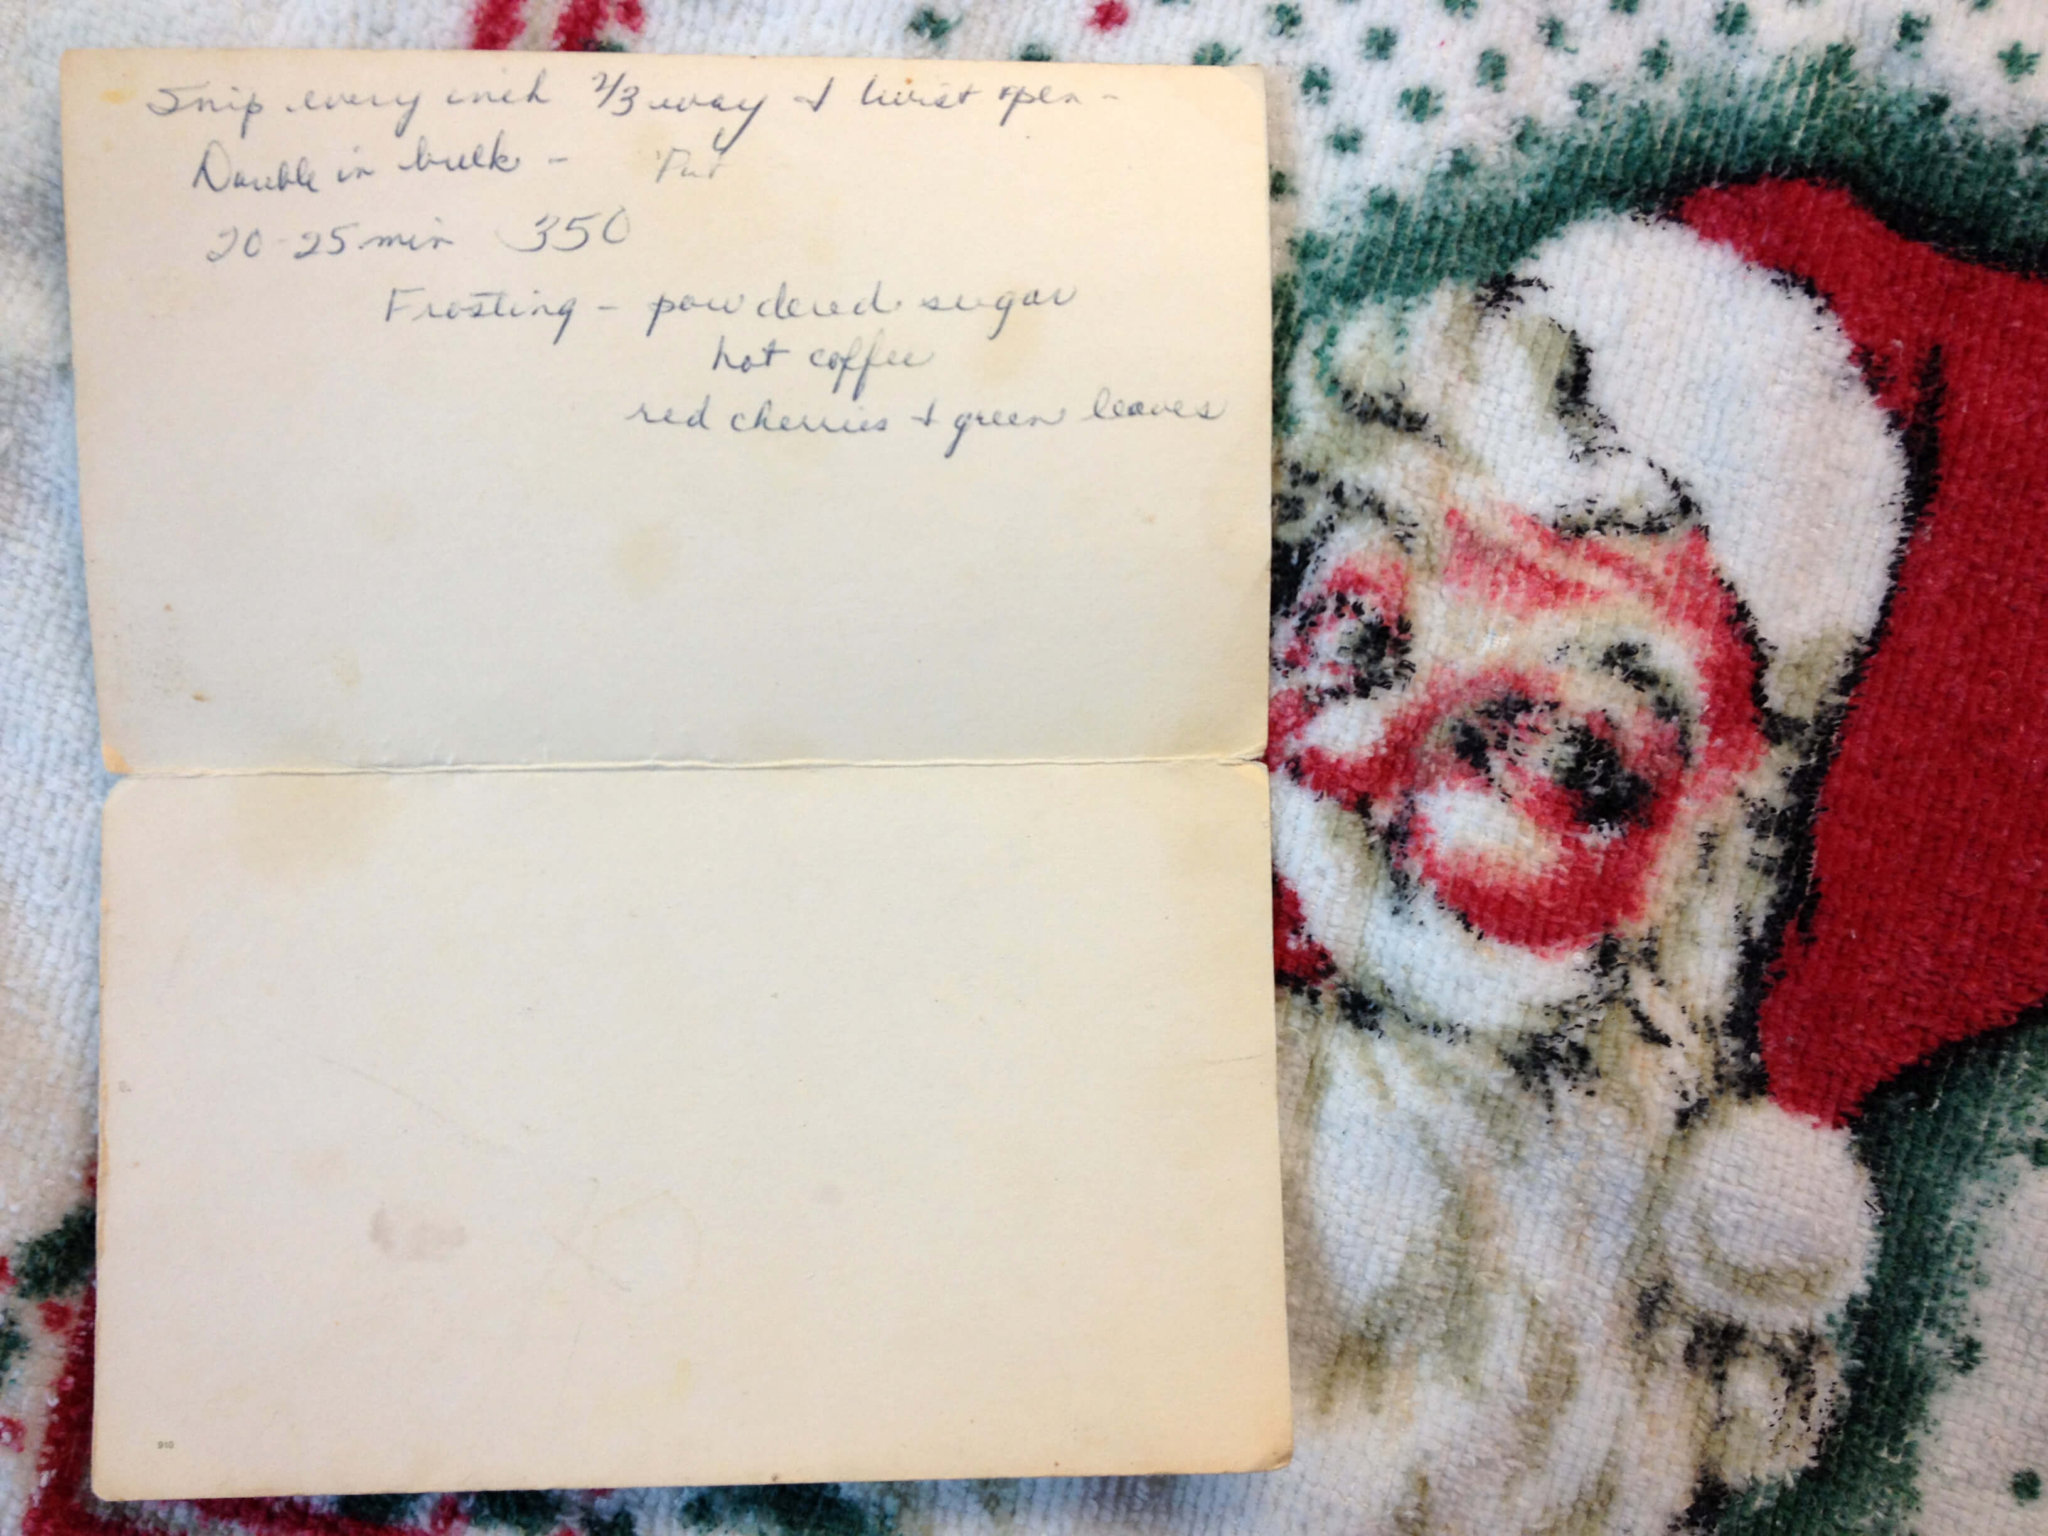 Snip every inch 2/3 way & twist open -
Double in bulk - Pat
20-25 min 350
Frosting - powdered sugar
hot coffee
red cherries & green leaves
910